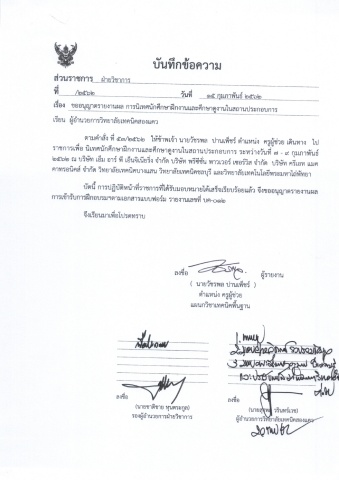 บันทึกข้อความ
ส่วนราชการ ฝ่ายวิชาการ
ที่ /๒๕๖๒ วันที่ ๑๕ กุมภาพันธ์ ๒๕๖๒
เรื่อง ขออนุญาตรายงานผล การนิเทศนักศึกษาฝึกงานและศึกษาดูงานในสถานประกอบการ
เรียน ผู้อำนวยการวิทยาลัยเทคนิคสองแคว
ตามคำสั่งที่ ให้ข้าพเจ้า นายวัชรพล ปานเพ็ชร์ ตำแหน่ง ครูผู้ช่วย เดินทาง ไป
ราชการเพื่อ นิเทศนักศึกษาฝึกงานและศึกษาดูงานในสถานประกอบการ ระหว่างวันที่ ๗ - ๙ กุมภาพันธ์
๒๕๖๒ ณ บริษัท เอ็ม อาร์ พี เอ็นจิเนียริ่ง จำกัด บริษัท พรีซิชั่น พาวเวอร์ เซอร์วิส จำกัด บริษัท ครีเอท แมค
คาทรอนิคส์ จำกัด วิทยาลัยเทคนิคบางแสน วิทยาลัยเทคนิคชลบุรี และวิทยาลัยเทคโนโลยีพระมหาไถ่พัทยา
บัดนี้ การปฏิบัติหน้าที่ราชการที่ได้รับมอบหมายได้เสร็จเรียบร้อยแล้ว จึงขออนุญาตรายงานผล
การเข้ารับการฝึกอบรมฯตามเอกสารแบบฟอร์ม รายงานเลขที่
จึงเรียนมาเพื่อโปรดทราบ
ลงชื่อ ผู้รายงาน
( นายวัชรพล ปานเพ็ชร์ )
ตำแหน่ง ครูผู้ช่วย
แผนกวิชาเทคนิคพื้นฐาน
ลงชื่อ
(นายชาติชาย)
รองผู้อำนวยการฝ่ายวิชาการ
ลงชื่อ
ผู้อำนวยการวิทยาลัยเทคนิคสองแคว